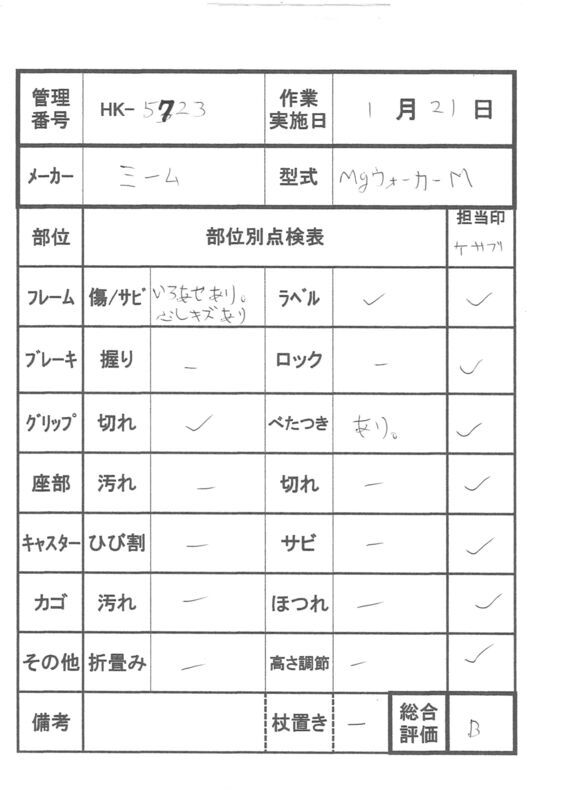 管理番号 HK-5723 作業実施日 1月21日
メーカー ミーム 型式 MgウォーカーM
部位 部位別点検表 担当印
フレーム 傷/サビ いろあせあり。 ラベル ✓ ✓
キズあり
ブレーキ 握り － ロック － ✓
グリップ 切れ ✓ べたつき あり。 ✓
座部 汚れ － 切れ － ✓
キャスター ひび割 － サビ － ✓
カゴ 汚れ － ほつれ － ✓
その他 折畳み － 高さ調節 － ✓
備考 杖置き － 総合評価 B